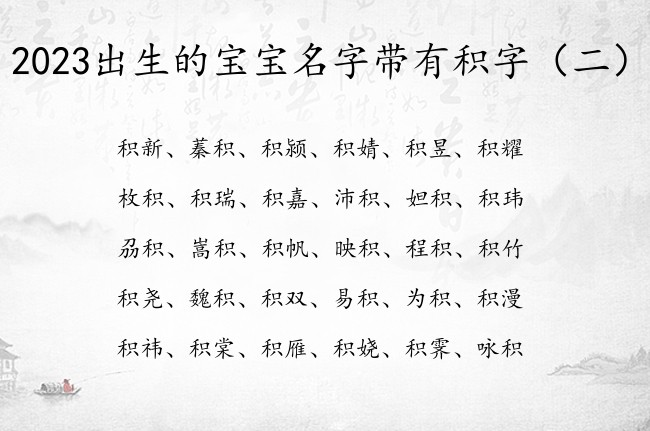 2023出生的宝宝名字带有积字（二）
积新、蓁积、积颍、积婧、积昱、积耀
枚积、积瑞、积嘉、沛积、妲积、积玮
刕积、嵩积、积帆、映积、程积、积竹
积尧、魏积、积双、易积、为积、积漫
积祎、积棠、积雁、积娆、积霁、咏积